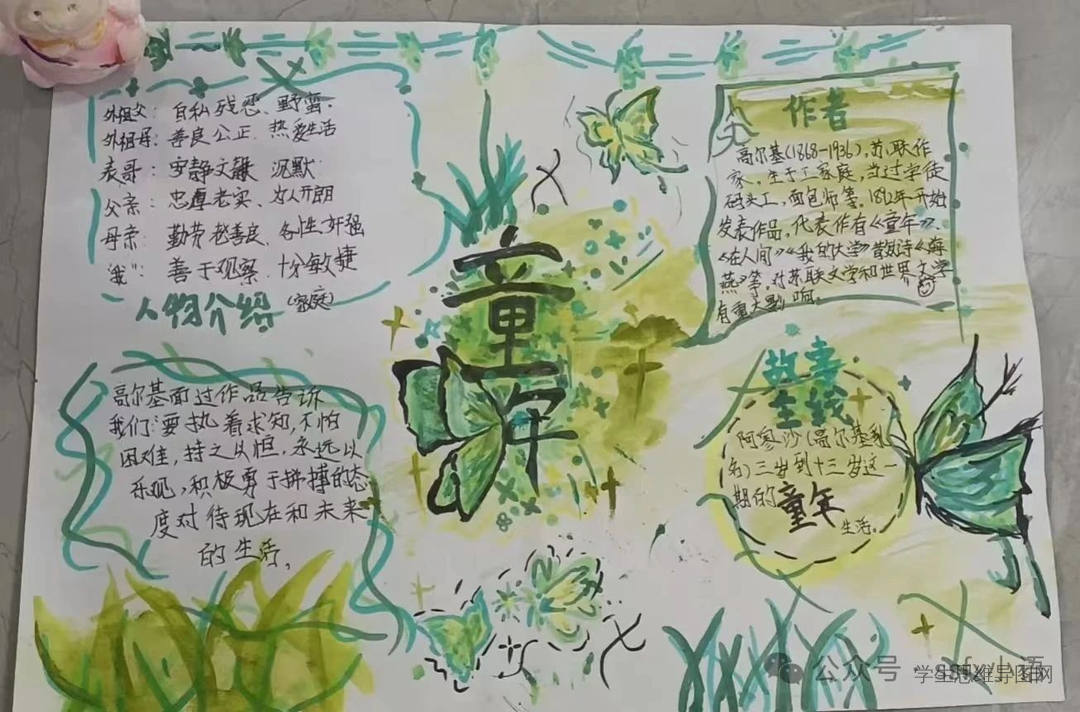 外祖父：自私残忍、野蛮。
外祖母：善良公正、热爱生活
表哥：安静文静 沉默
父亲：忠厚老实、为人开朗
母亲：勤劳善良、个性好强
"我"：善于观察、十分敏捷
人物介绍（家庭）
高尔基面过作品告诉
我们：要执着求知，不怕
困难，持之以恒，永远以
乐观，积极勇于拼搏的态
度对待现在和未来
的生活。
童年
作者
高尔基(1868-1936)，苏联作
家，生于工家庭，当过学徒
码头工，面包师等，1892年开始
发表作品，代表作有《童年》、
《在人间》《我的大学》散文诗《海
燕》等，对苏联文学和世界文学
有重大影响。
故事
主线
阿廖沙（高尔基乳
名）三岁到十三岁这一
期的童年
生活。
公众号
学生思维导图网